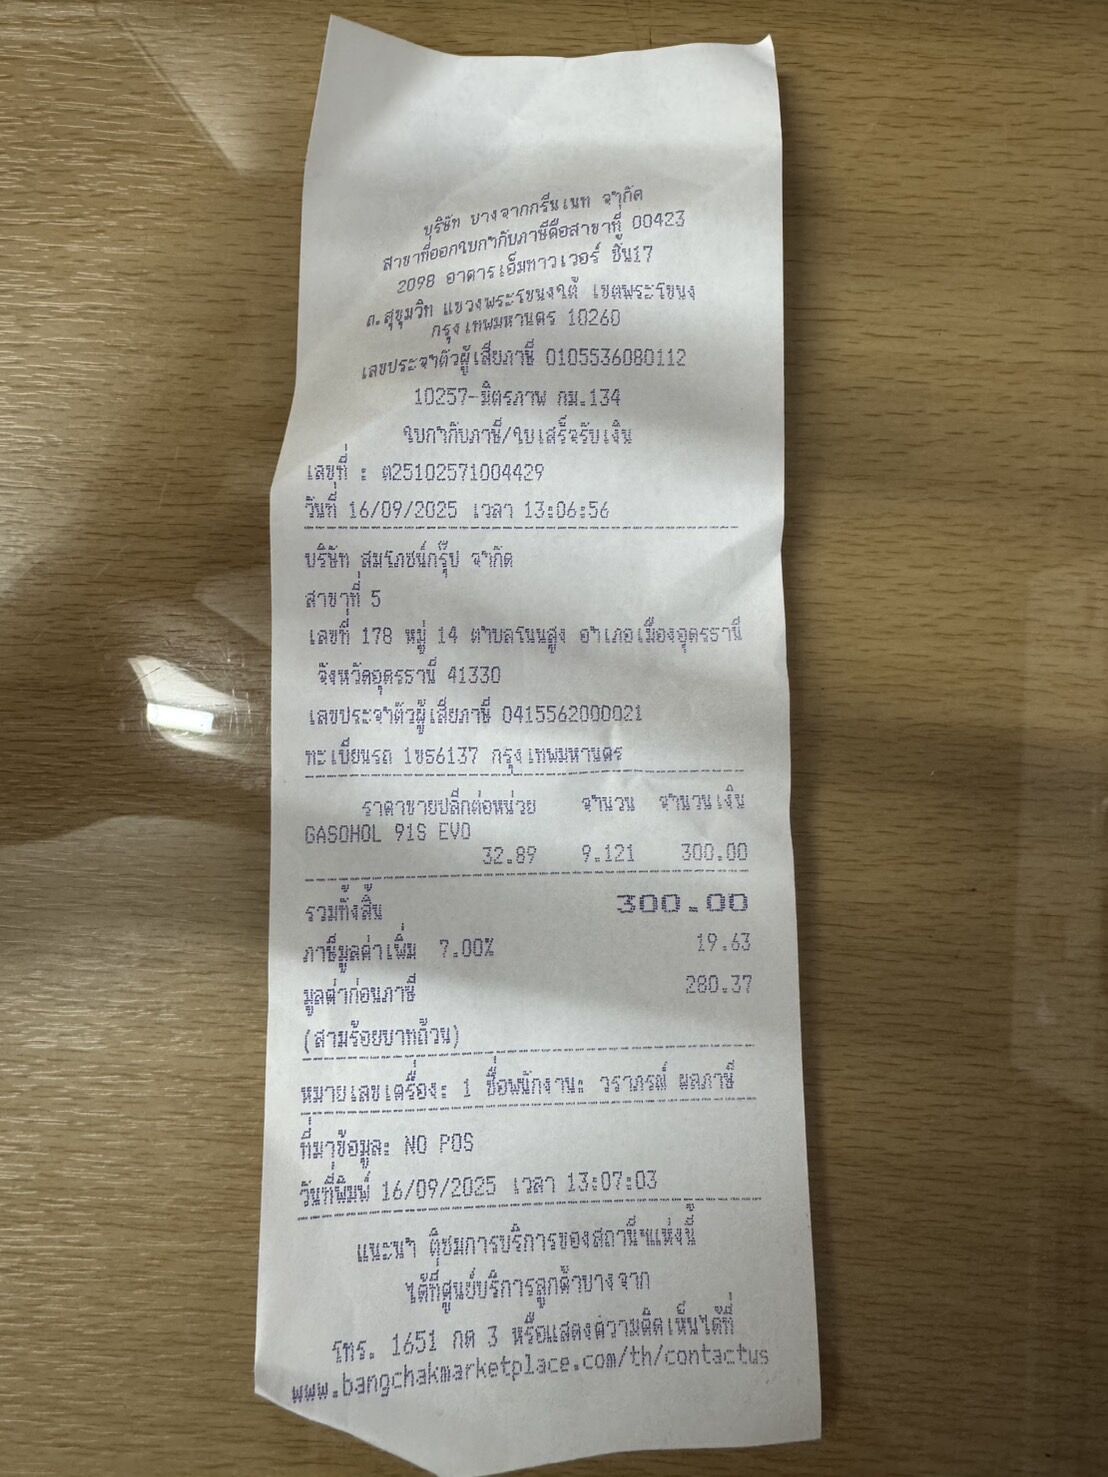 บริษัท บางจากกรีนเนท จำกัด
สาขาที่ออกใบกำกับภาษีคือสาขาที่ 00423
2098 อาคารเอ็มทาวเวอร์ ชั้น17
ถ.สุขุมวิท แขวงพระโขนงใต้ เขตพระโขนง
กรุงเทพมหานคร 10260
เลขประจำตัวผู้เสียภาษี 0105536080112
10257-มิตรภาพ กม.134
ใบกำกับภาษี/ใบเสร็จรับเงิน
เลขที่ : ต25102571004429
วันที่ 16/09/2025 เวลา 13:06:56
บริษัท สมโภชน์กรุ๊ป จำกัด
สาขาที่ 5
เลขที่ 178 หมู่ 14 ตำบลโนนสูง อำเภอเมืองอุดรธานี
จังหวัดอุดรธานี 41330
เลขประจำตัวผู้เสียภาษี 0415562000021
ทะเบียนรถ 1ขร6137 กรุงเทพมหานคร
ราคาขายปลีกต่อหน่วย จำนวน จำนวนเงิน
GASOHOL 91S EVO
32.89 9.121 300.00
รวมทั้งสิ้น 300.00
ภาษีมูลค่าเพิ่ม 7.00% 19.63
มูลค่าก่อนภาษี 280.37
(สามร้อยบาทถ้วน)
หมายเลขเครื่อง: 1 ชื่อพนักงาน: วราภรณ์ ผลภาษี
ที่มาข้อมูล: NO POS
วันที่พิมพ์ 16/09/2025 เวลา 13:07:03
แนะนำ ติชมการบริการของสถานีฯแห่งนี้
ได้ที่ศูนย์บริการลูกค้าบางจาก
โทร. 1651 กด 3 หรือแสดงความคิดเห็นได้ที่
www.bangchakmarketplace.com/th/contactus